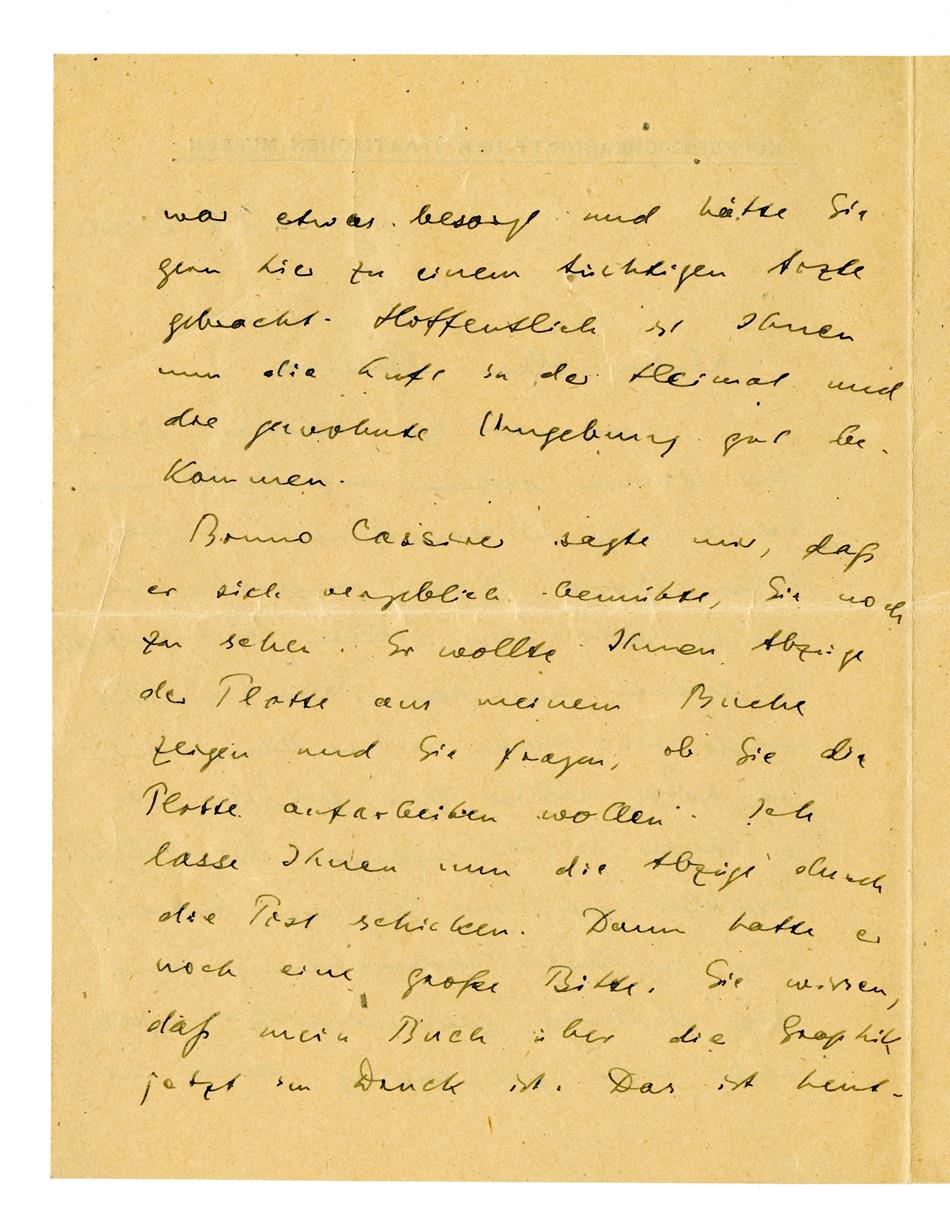 war etwas besorgt und hätte Sie
gern hier zu einem tüchtigen Arzte
gebracht. Hoffentlich ist Ihnen
nun die Luft in der Heimat und
die gewohnte Umgebung gut be-
kommen.
Bruno Cassirer sagte mir, daß
er sich vergeblich bemühte, Sie noch
zu sehen. Er wollte Ihnen Abzüge
der Platte aus meinem Buche
zeigen und Sie fragen, ob Sie die
Platte aufarbeiten wollen. Ich
lasse Ihnen nun die Abzüge durch
die Post schicken. Dann hatte er
noch eine große Bitte. Sie wissen,
daß mein Buch über die Graphik
jetzt im Druck ist. Das ist heut-